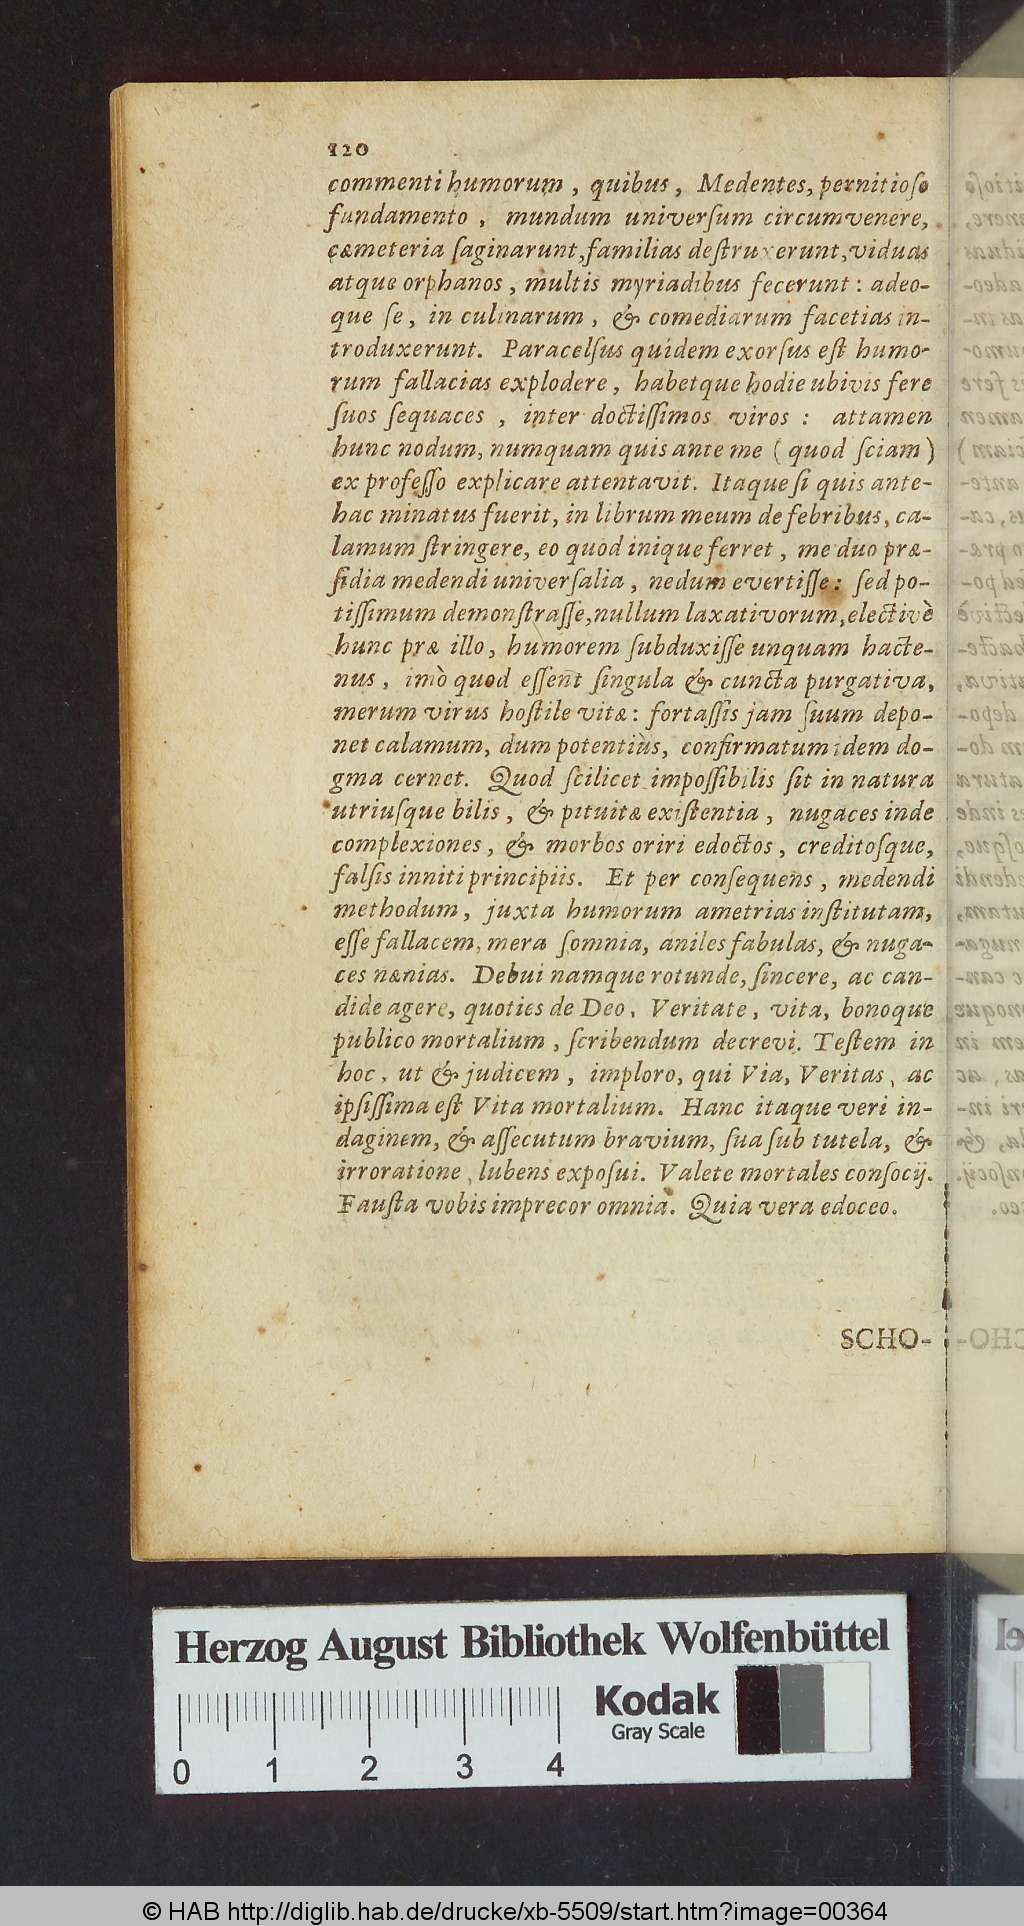 120
commenti humorum, quibus, Medentes, pernitioſo
fundamento, mundum univerſum circumvenere,
cæmeteria ſaginarunt, familias deſtruxerunt, viduas
atque orphanos, multis myriadibus fecerunt: adeo-
que ſe, in culinarum, & comediarum facetias in-
troduxerunt. Paracelſus quidem exorſus eſt humo-
rum fallacias explodere, habetque hodie ubivis fere
ſuos ſequaces, inter doctiſſimos viros: attamen
hunc nodum, numquam quis ante me (quod ſciam)
ex profeſſo explicare attentavit. Itaque ſi quis ante-
hac minatus fuerit, in librum meum de febribus, ca-
lamum ſtringere, eo quod inique ferret, me duo præ-
ſidia medendi univerſalia, nedum evertiſſe: ſed po-
tiſſimum demonſtraſſe, nullum laxativorum, electivè
hunc præ illo, humorem ſubduxiſſe unquam hacte-
nus, imò quod eſſent ſingula & cuncta purgativa,
merum virus hoſtile vitæ: fortaſſis jam ſuum depo-
net calamum, dum potentiùs, confirmatum idem do-
gma cernet. Quod ſcilicet impoſſibilis ſit in natura
utriuſque bilis, & pituitæ exiſtentia, nugaces inde
complexiones, & morbos oriri edoctos, creditoſque,
falſis inniti principiis. Et per conſequens, medendi
methodum, juxta humorum ametrias inſtitutam,
eſſe fallacem, mera ſomnia, aniles fabulas, & nuga-
ces nænias. Debui namque rotunde, ſincere, ac can-
dide agere, quoties de Deo, Veritate, vita, bonoque
publico mortalium, ſcribendum decrevi. Teſtem in
hoc, ut & judicem, imploro, qui Via, Veritas, ac
ipſiſſima eſt Vita mortalium. Hanc itaque veri in-
daginem, & aſſecutum bravium, ſua ſub tutela, &
irroratione, lubens expoſui. Valete mortales conſocij.
Fauſta vobis imprecor omnia. Quia vera edoceo.
SCHO-
Herzog August Bibliothek Wolfenbüttel
Kodak
Gray Scale
0 1 2 3 4
© HAB http://diglib.hab.de/drucke/xb-5509/start.htm?image=00364